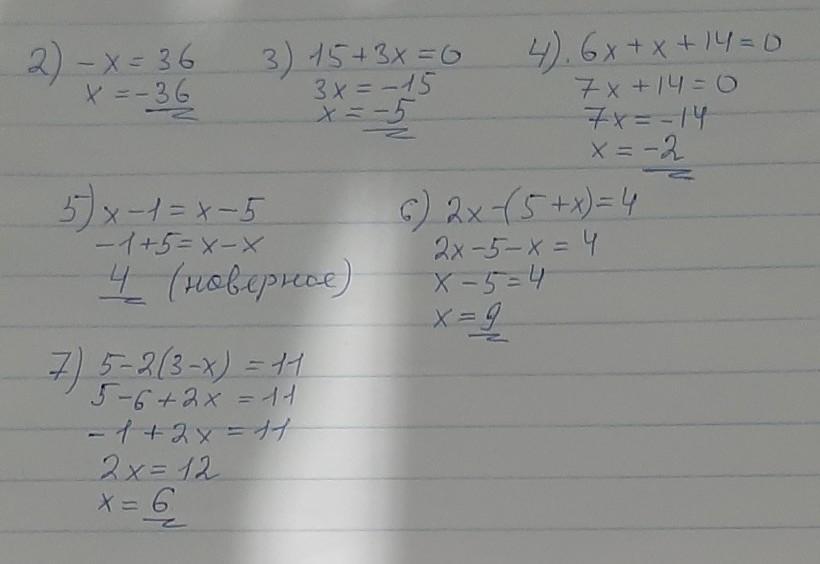 2) -x = 36
x = -36
3) 15 + 3x = 0
3x = -15
x = -5
4). 6x + x + 14 = 0
7x + 14 = 0
7x = -14
x = -2
5) x - 1 = x - 5
-1 + 5 = x - x
4 (наверное)
6) 2x - (5 + x) = 4
2x - 5 - x = 4
x - 5 = 4
x = 9
7) 5 - 2(3 - x) = 11
5 - 6 + 2x = 11
-1 + 2x = 11
2x = 12
x = 6